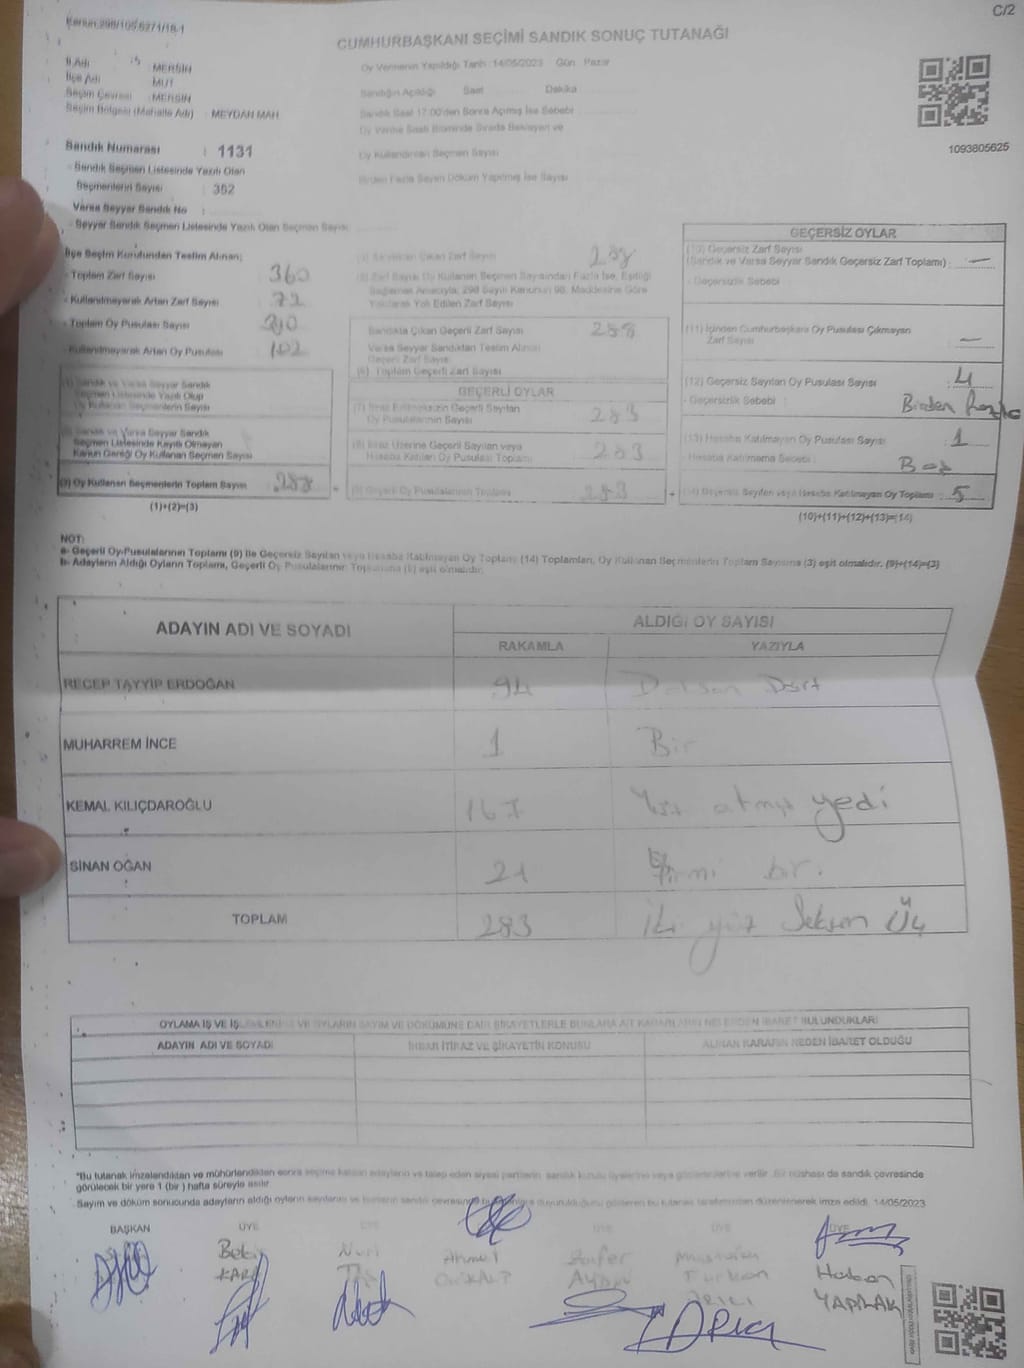 Kanun:298/105,6271/18-1
C/2
CUMHURBAŞKANI SEÇİMİ SANDIK SONUÇ TUTANAĞI
İl Adı : MERSİN
İlçe Adı : MUT
Seçim Çevresi : MERSİN
Seçim Bölgesi (Mahalle Adı) : MEYDAN MAH
Oy Vermenin Yapıldığı Tarih :14/05/2023 Gün Pazar
Sandığın Açıldığı Saat Dakika
Sandık Saat 17:00'den Sonra Açılmış İse Sebebi
Oy Verme Saati Bitiminde Sırada Bekleyen ve
Oy Kullandırılan Seçmen Sayısı
Birden Fazla Sayım Döküm Yapılmış İse Sayısı
1093805625
Sandık Numarası : 1131
- Sandık Seçmen Listesinde Yazılı Olan
Seçmenlerin Sayısı : 352
Varsa Seyyar Sandık No :
- Seyyar Sandık Seçmen Listesinde Yazılı Olan Seçmen Sayısı
İlçe Seçim Kurulundan Teslim Alınan;
- Toplam Zarf Sayısı : 360
- Kullanılmayarak Artan Zarf Sayısı : 72
- Toplam Oy Pusulası Sayısı :
- Kullanılmayarak Artan Oy Pusulası : 102
(1) Sandık ve Varsa Seyyar Sandık
Seçmen Listesinde Yazılı Olup
Oy Kullanan Seçmenlerin Sayısı
(2) Sandık ve Varsa Seyyar Sandık
Seçmen Listesinde Kayıtlı Olmayan
Kanun Gereği Oy Kullanan Seçmen Sayısı
(3) Oy Kullanan Seçmenlerin Toplam Sayısı : 288
(1)+(2)=(3)
(4) Sandıktan Çıkan Zarf Sayısı 288
(5) Zarf Sayısı Oy Kullanan Seçmen Sayısından Fazla İse, Eşitliği
Sağlamak Amacıyla, 298 Sayılı Kanunun 98. Maddesine Göre
Yakılarak Yok Edilen Zarf Sayısı
Sandıkta Çıkan Geçerli Zarf Sayısı 288
Varsa Seyyar Sandıktan Teslim Alınan
Geçerli Zarf Sayısı
(6) Toplam Geçerli Zarf Sayısı
GEÇERLİ OYLAR
(7) İtiraz Edilmeksizin Geçerli Sayılan
Oy Pusulalarının Sayısı 283
(8) İtiraz Üzerine Geçerli Sayılan veya
Hesaba Katılan Oy Pusulası Toplamı 283
(9) Geçerli Oy Pusulalarının Toplamı 283
GEÇERSİZ OYLAR
(10) Geçersiz Zarf Sayısı
(Sandık ve Varsa Seyyar Sandık Geçersiz Zarf Toplamı) : —
- Geçersizlik Sebebi :
(11) İçinden Cumhurbaşkanı Oy Pusulası Çıkmayan
Zarf Sayısı —
(12) Geçersiz Sayılan Oy Pusulası Sayısı : 4
- Geçersizlik Sebebi : Birden Fazla
(13) Hesaba Katılmayan Oy Pusulası Sayısı : 1
- Hesaba Katılmama Sebebi : Boş
(14) Geçersiz Sayılan veya Hesaba Katılmayan Oy Toplamı : 5
(10)+(11)+(12)+(13)=(14)
NOT:
a- Geçerli Oy Pusulalarının Toplamı (9) ile Geçersiz Sayılan veya Hesaba Katılmayan Oy Toplamı (14) Toplamları, Oy Kullanan Seçmenlerin Toplam Sayısına (3) eşit olmalıdır. (9)+(14)=(3)
b- Adayların Aldığı Oyların Toplamı, Geçerli Oy Pusulalarının Toplamına (9) eşit olmalıdır.
ADAYIN ADI VE SOYADI
ALDIĞI OY SAYISI
RAKAMLA YAZIYLA
RECEP TAYYİP ERDOĞAN 94 Doksan Dört
MUHARREM İNCE 1 Bir
KEMAL KILIÇDAROĞLU 167 Yüz atmış yedi
SİNAN OĞAN 21 Yirmi bir.
TOPLAM 283 İki yüz Seksen Üç
OYLAMA İŞ VE İŞLEMLERİNE VE OYLARIN SAYIM VE DÖKÜMÜNE DAİR ŞİKAYETLERLE BUNLARA AİT KARARLARIN NELERDEN İBARET BULUNDUKLARI
ADAYIN ADI VE SOYADI İHBAR İTİRAZ VE ŞİKAYETİN KONUSU ALINAN KARARIN NEDEN İBARET OLDUĞU
"Bu tutanak imzalandıktan ve mühürlendikten sonra seçime katılan adayların ve talep eden siyasi partilerin sandık kurulu üyelerine veya gözlemcilerine verilir. Bir nüshası da sandık çevresinde
görülecek bir yere 1 (bir ) hafta süreyle asılır.
Sayım ve döküm sonucunda adayların aldığı oyların sayılarını ve bunların sandık çevresinde
14/05/2023
BAŞKAN ÜYE ÜYE ÜYE ÜYE ÜYE
Bekir Nuri Ahmet Zafer Hakan
KARA Türkan YAPRAK